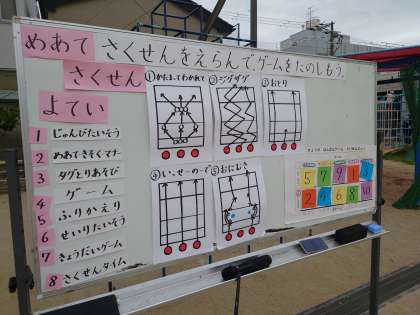 めあて さくせんをえらんでゲームをたのしもう。
さくせん
①かたまってわかれて
②ジグザグ
③おとり
④い、せーので
⑤おにむこ
よてい
1 じゅんびたいそう
2 めあてさそくマナー
3 タグとりあそび
4 ゲーム
5 ふりかえり
6 せいりたいそう
7 きょうだいゲーム
8 さくせんタイム
5 7 9 1 3
2 4 6 8 10